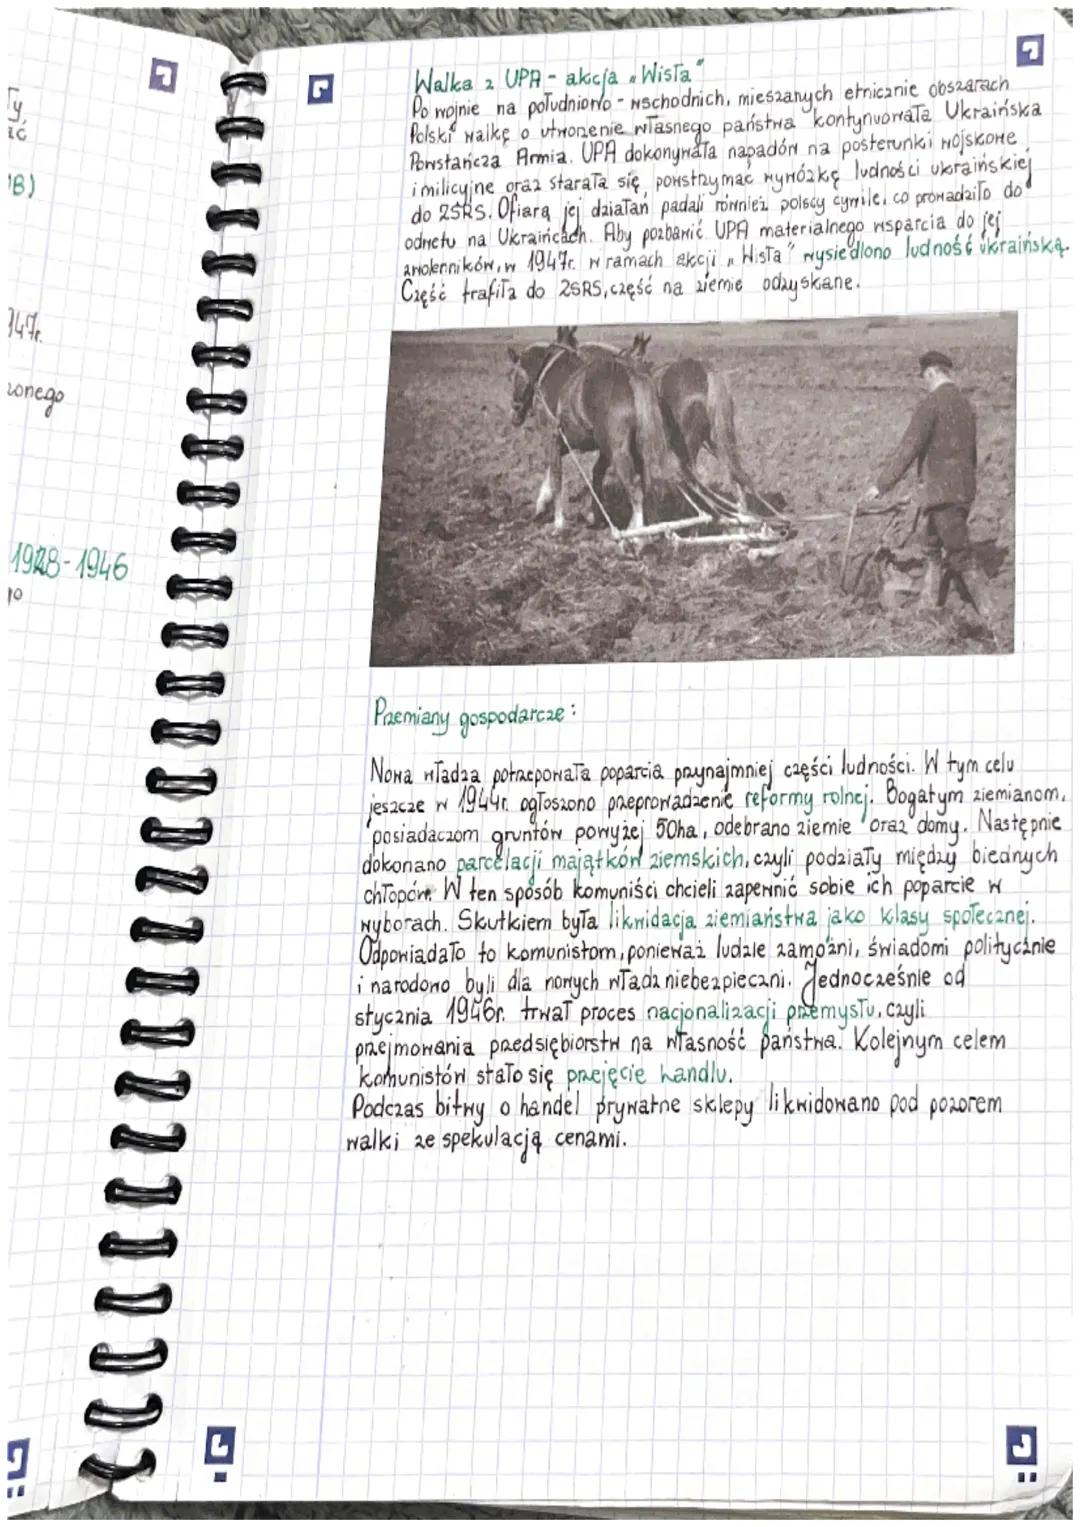 Ty,
ać
B)
947r.
zonego
1928-1946
go
Walka z UPA - akcja „Wisła"
Po wojnie na południowo - wschodnich, mieszanych etnicznie obszarach
Polski walkę o utworzenie własnego państwa kontynuowała Ukraińska
Powstańcza Armia. UPA dokonywała napadów na posterunki wojskowe
i milicyjne oraz starała się powstrzymać wywózkę ludności ukraińskiej
do ZSRS. Ofiarą jej działań padali również polscy cywile, co prowadziło do
odwetu na Ukraińcach. Aby pozbawić UPA materialnego wsparcia do jej
zwolenników, w 1947r. w ramach akcji „Wisła" wysiedlono ludność ukraińską.
Część trafiła do ZSRS, część na ziemie odzyskane.
Przemiany gospodarcze:
Nowa władza potrzepowała poparcia przynajmniej części ludności. W tym celu
jeszcze w 1944r. ogłoszono przeprowadzenie reformy rolnej. Bogatym ziemianom,
posiadaczom gruntów powyżej 50ha, odebrano ziemie oraz domy. Następnie
dokonano parcelacji majątków ziemskich, czyli podziały między biednych
chłopów. W ten sposób komuniści chcieli zapewnić sobie ich poparcie w
wyborach. Skutkiem była likwidacja ziemiaństwa jako klasy społecznej.
Odpowiadało to komunistom, ponieważ ludzie zamożni, świadomi politycznie
i narodowo byli dla nowych władz niebezpieczni. Jednocześnie od
stycznia 1946r. trwał proces nacjonalizacji przemysłu, czyli
przejmowania przedsiębiorstw na własność państwa. Kolejnym celem
komunistów stało się przejęcie handlu.
Podczas bitwy o handel prywatne sklepy likwidowano pod pozorem
walki ze spekulacją cenami.